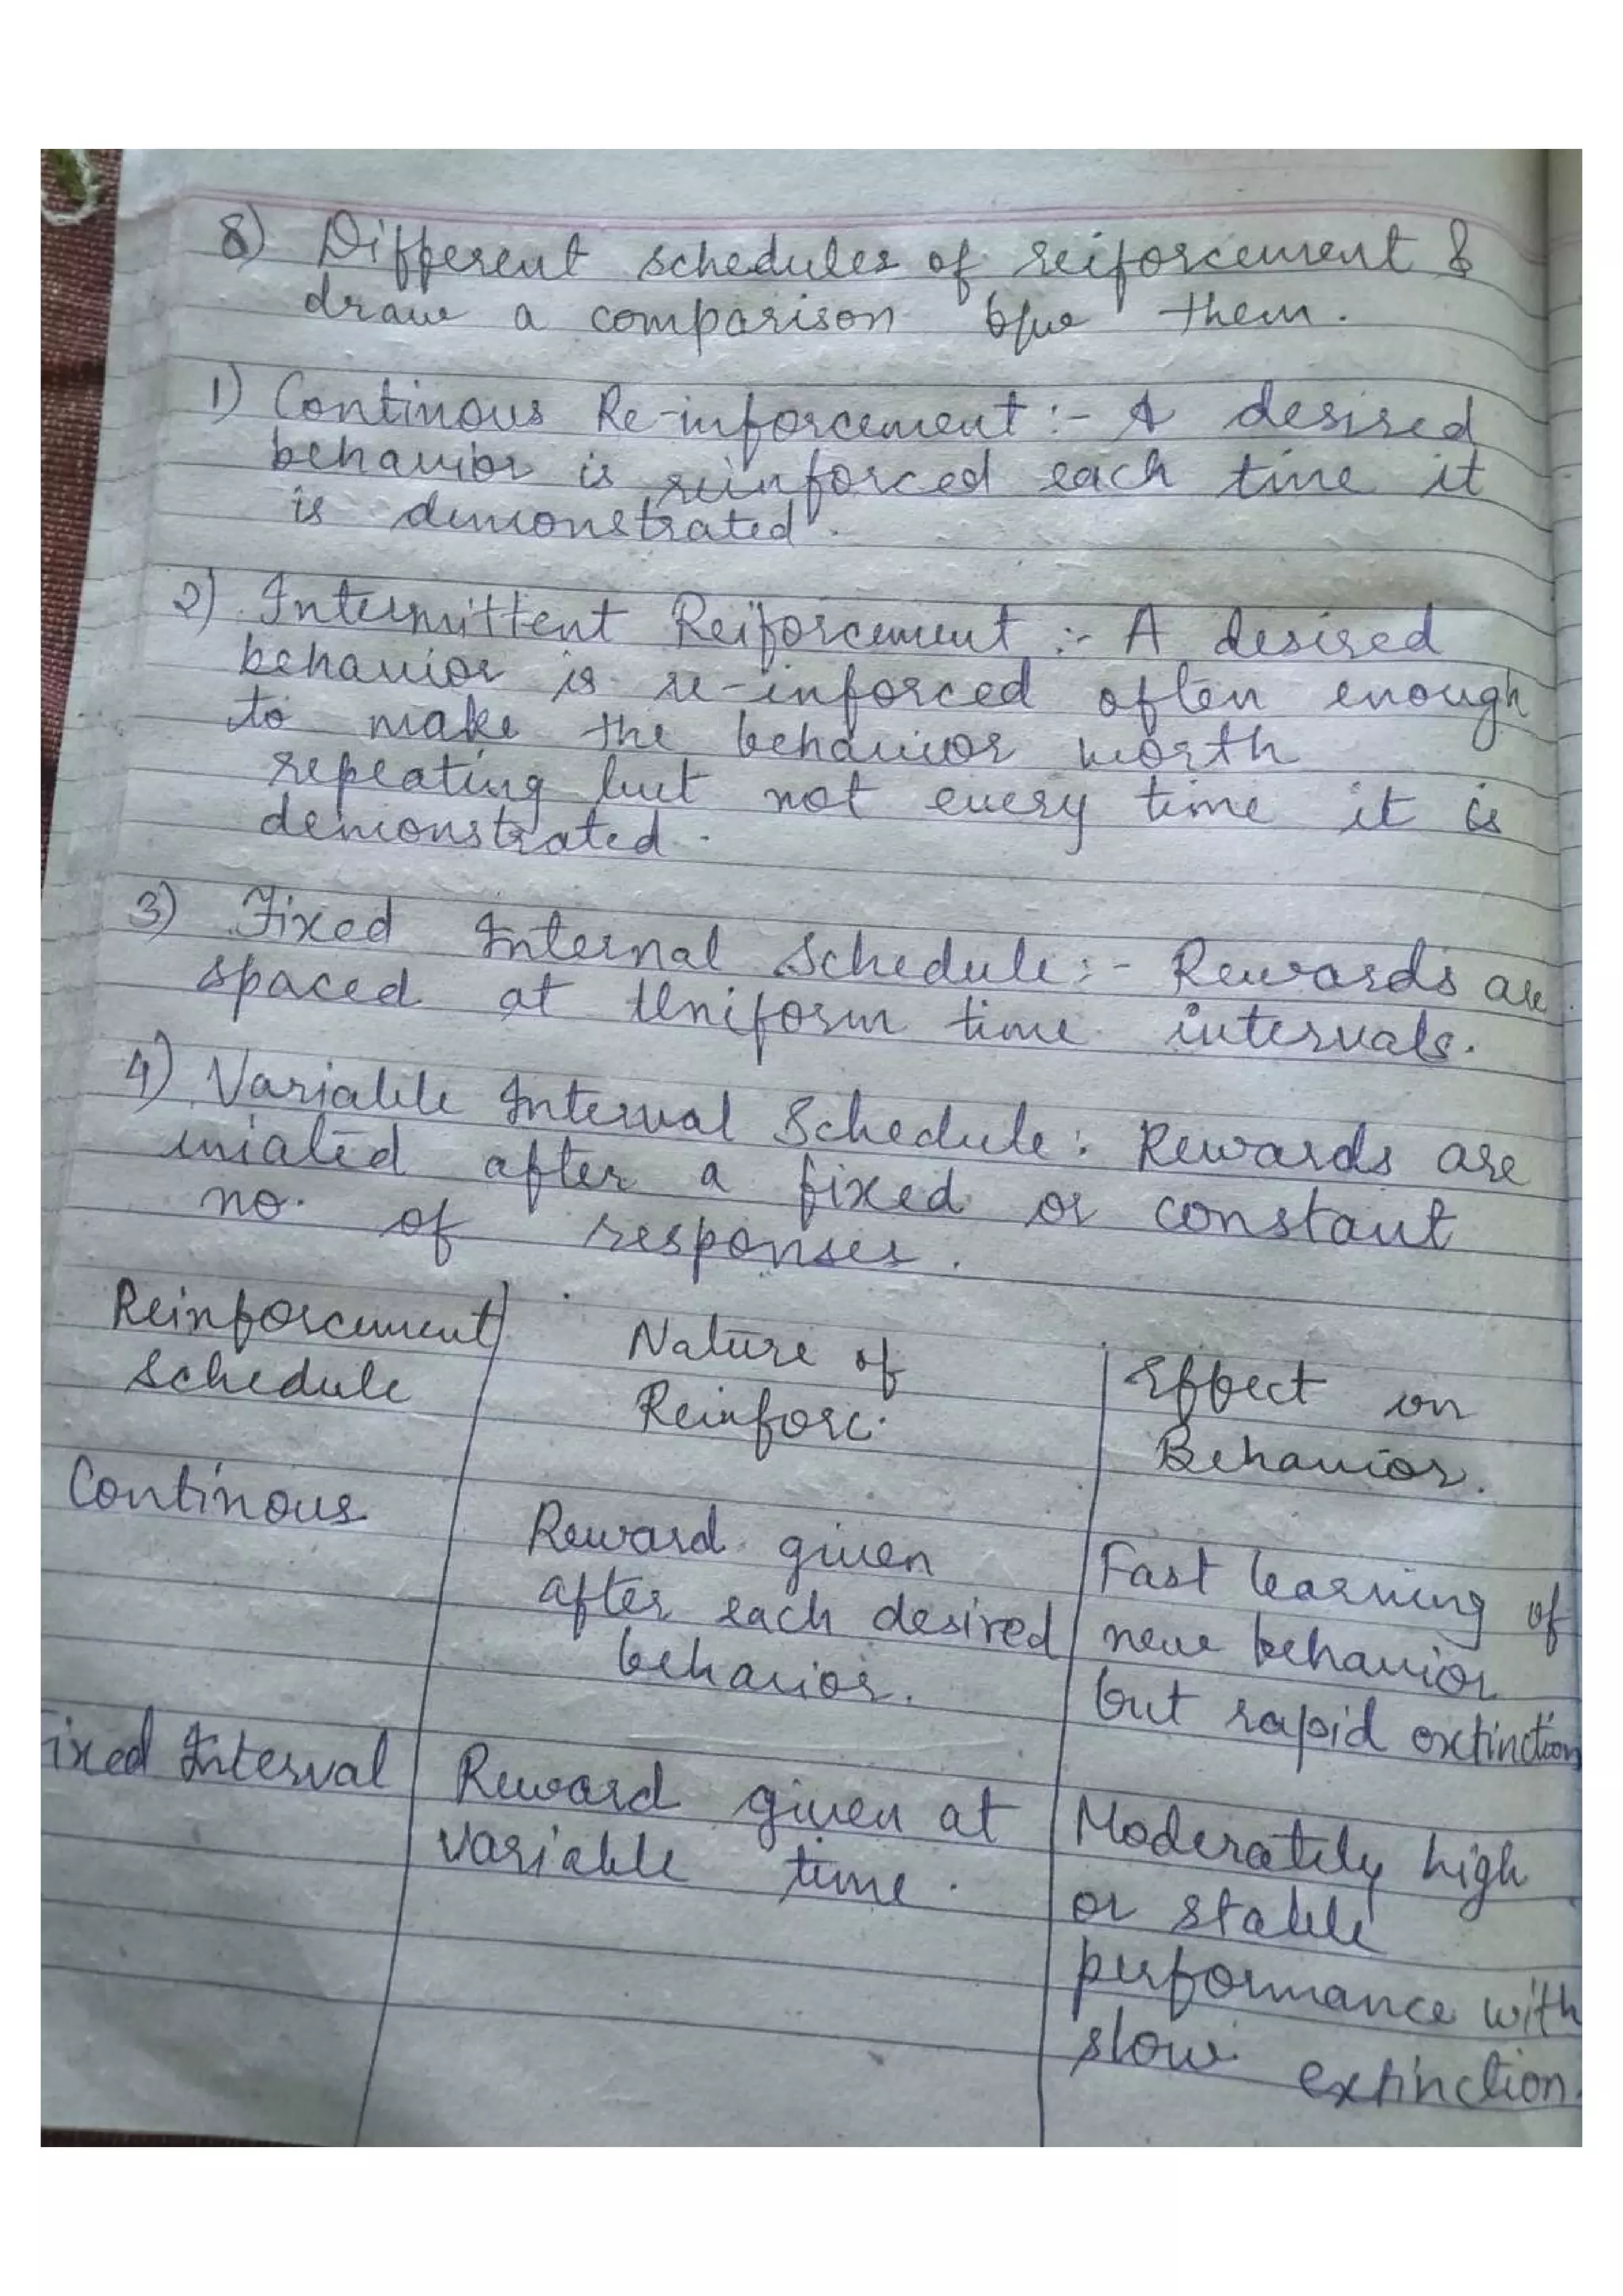 8) Different schedules of reiforcement &
draw a comparison b/w them.
1) Continous Re-inforcement :- A desired
behavior is reinforced each time it
is demonstrated.
2) Intermittent Reiforcement :- A desired
behavior is re-inforced often enough
to make the behavior worth
repeating but not every time it is
demonstrated.
3) Fixed Internal Schedule :- Rewards are
spaced at Uniform time intervals.
4) Variable Interval Schedule : Rewards are
iniated after a fixed or constant
no. of responses.
Reinforcement Schedule
Nature of Reinforc.
Effect on Behavior.
Continous
Reward given
after each desired
behavior.
Fast learning of
new behavior
but rapid extinction
ixed Interval
Reward given at
variable time.
Moderately high
or stable
performance with
slow extinction.